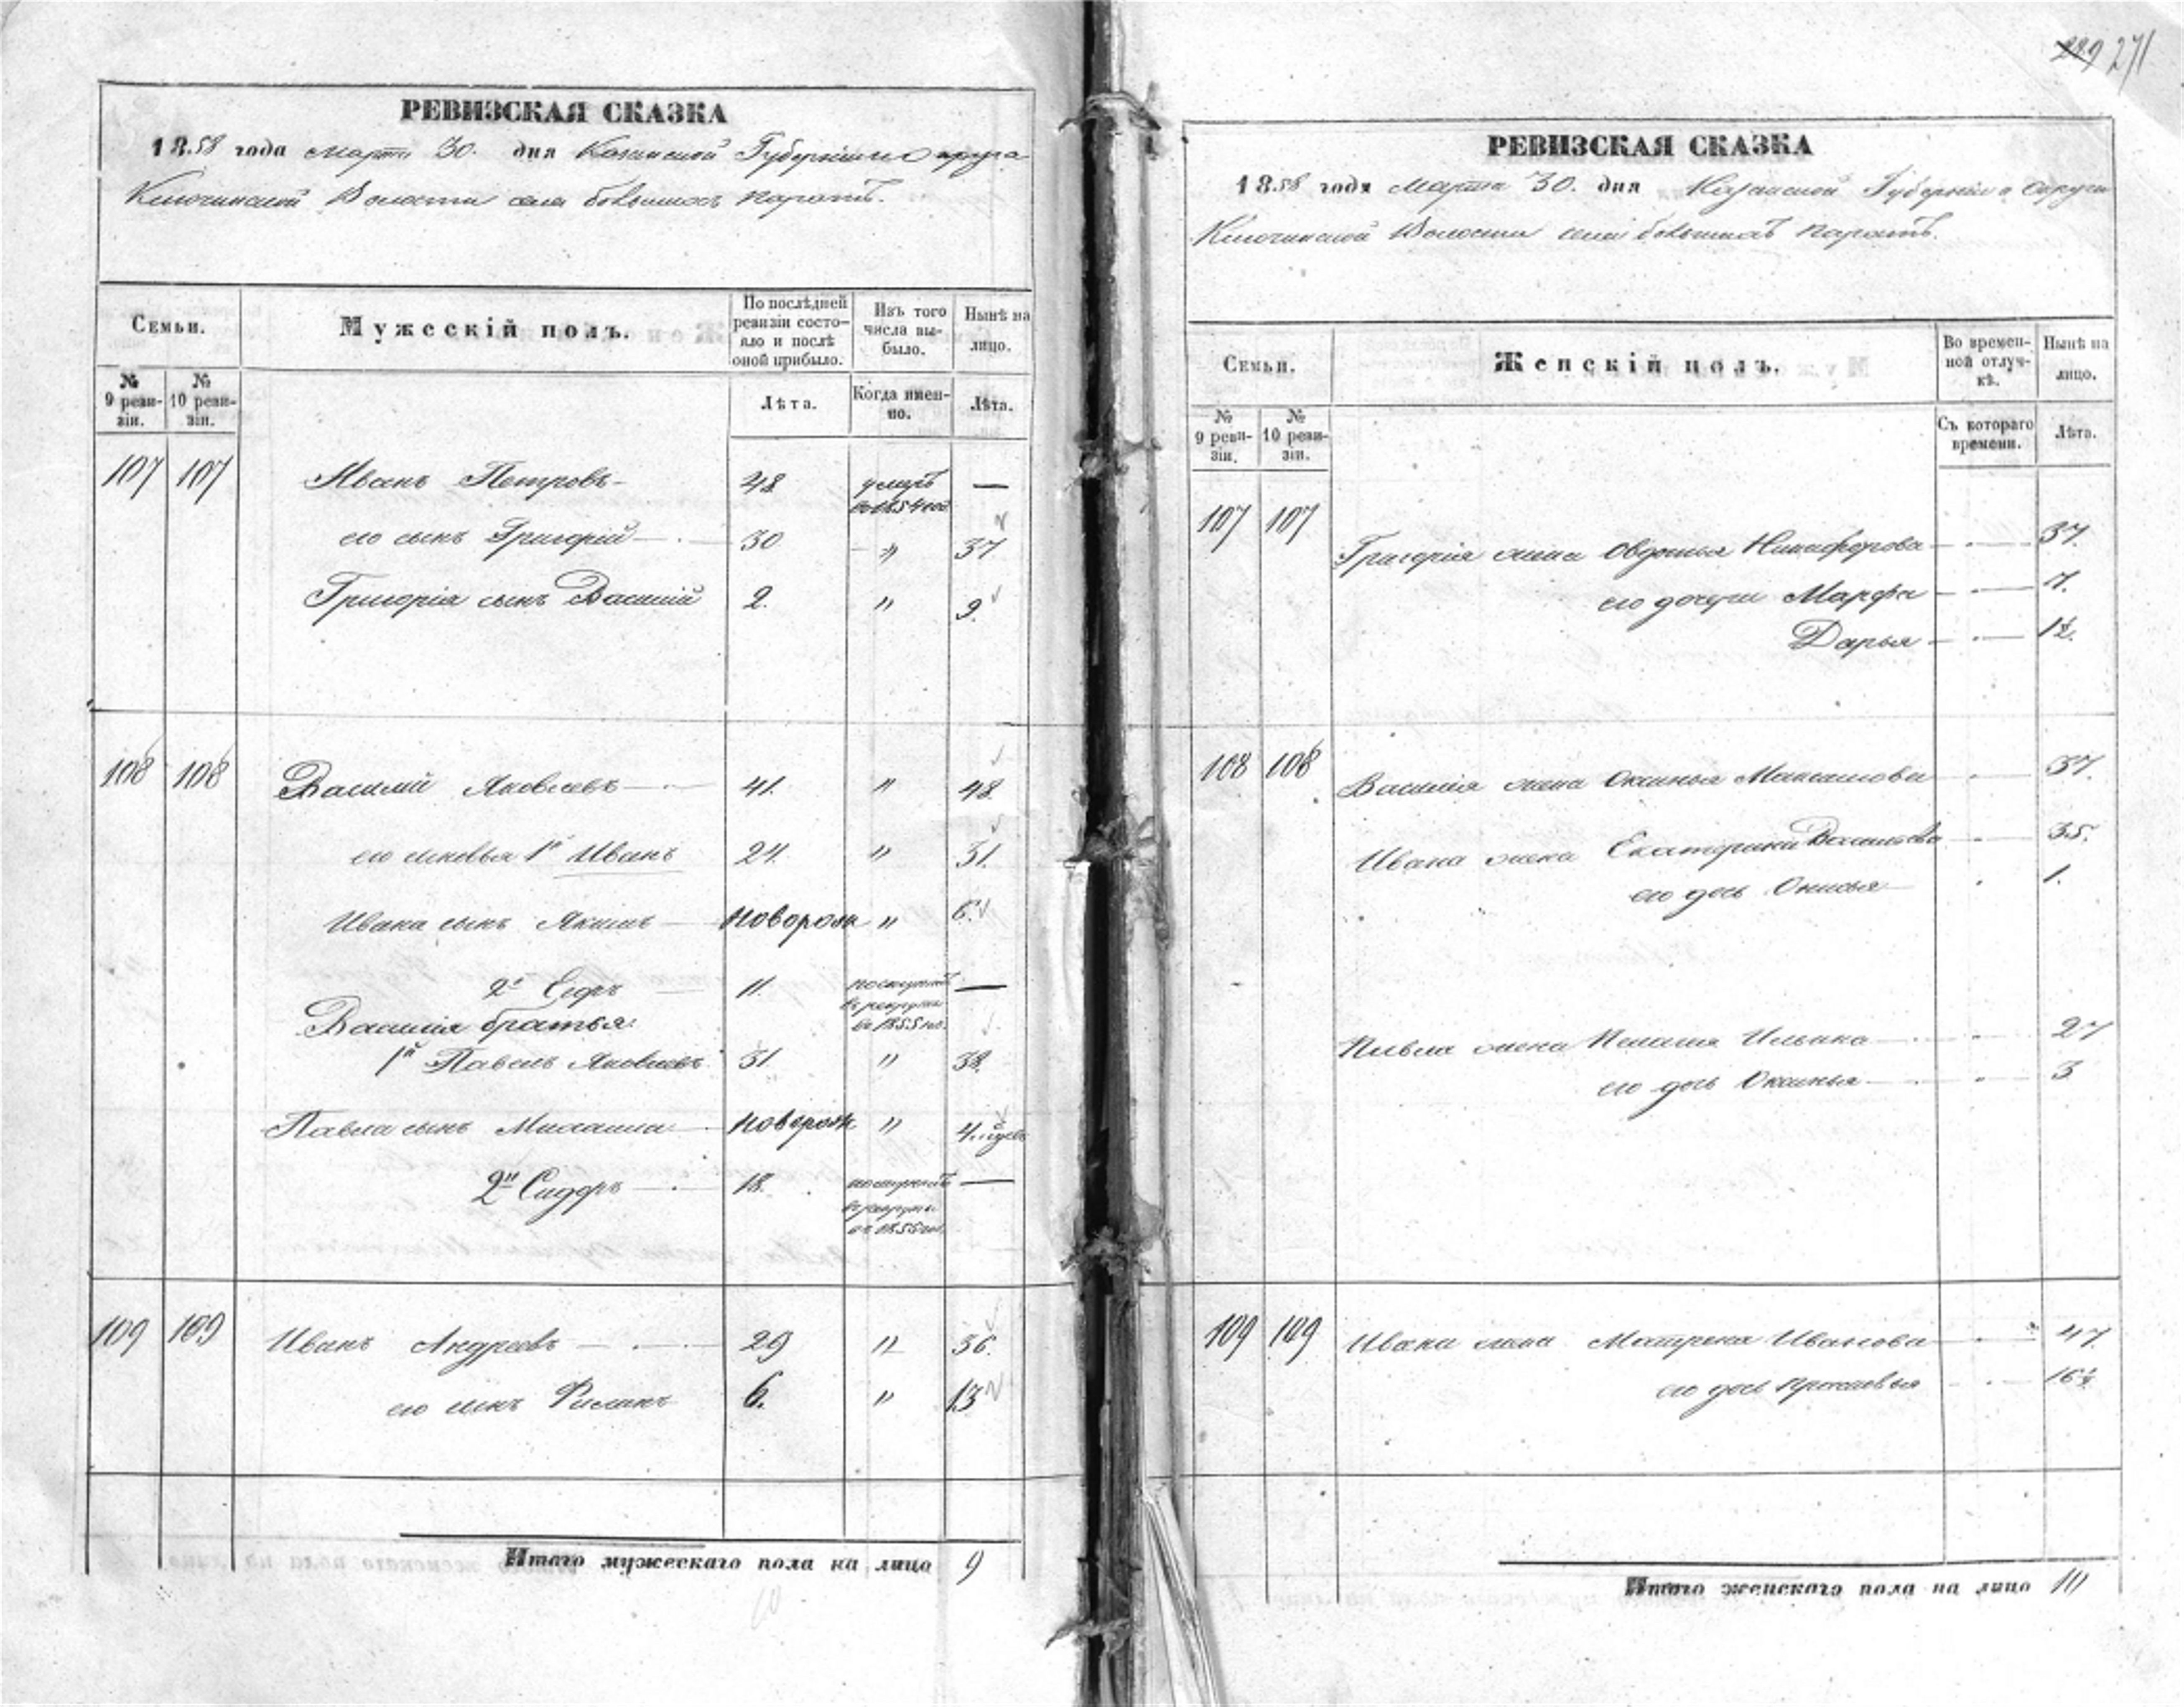 289 271
РЕВИЗСКАЯ СКАЗКА
1858 года марта 30. дня Казанской Губернии и округа
Ключинской Волости села большихъ
Семьи.
Мужескій полъ.
По послѣдней ревизіи состояло и послѣ оной прибыло.
Изъ того числа выбыло.
Нынѣ на лицо.
№ 9 ревизіи.
№ 10 ревизіи.
Лѣта.
Когда именно.
Лѣта.
107 107 Иванъ Петровъ 48 умеръ въ 1854 году —
его сынъ Григорій 30 " 37
Григорія сынъ Василій 2. " 9.
108 108 Василий Яковлевъ 41. " 48
его сыновья 1й Иванъ 24. " 31.
Ивана сынъ Якимъ новорож " 6.
2й 11. поступилъ въ рекруты въ 1855 го. —
Василія братья:
1й Павелъ Яковлевъ 31 " 38.
Павла сынъ Михаила новорож " 4.
2й Сидоръ 18. поступилъ въ рекруты —
109 109 Иванъ Андреевъ 29 " 36.
его сынъ 6. " 13
Итого мужескаго пола на лицо 9
10
РЕВИЗСКАЯ СКАЗКА
1858 года Марта 30. дня Казанской Губерніи и Округи
Ключинской Волости села большихъ
Семьи.
Женскій полъ.
Во временной отлучкѣ.
Нынѣ на лицо.
№ 9 ревизіи.
№ 10 ревизіи.
Съ котораго времени.
Лѣта.
107 107 Григорія жена Овдотья Никифорова 37.
его дочери Марфа 7.
Дарья 1½.
108 108 Василія жена Оксинья Максимова 37.
Ивана жена Екатерина Васильева 35.
его дочь Онисья 1.
Павла жена Пелагея Ильина 27
его дочь Оксинья 3
109 109 Ивана жена Матрена Иванова 47.
его дочь 16½
Итого женскаго пола на лицо 10